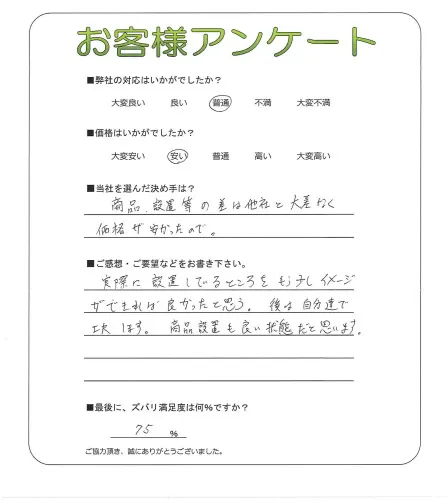 お客様アンケート
■弊社の対応はいかがでしたか？
大変良い 良い 普通 不満 大変不満
■価格はいかがでしたか？
大変安い 安い 普通 高い 大変高い
■当社を選んだ決め手は？
商品、設置等の差は他社と大差なく
価格が安かったので。
■ご感想・ご要望などをお書き下さい。
実際に設置しているところをもう少しイメージ
ができれば良かったと思う。後は自分達で
工夫します。商品設置も良い状態だと思います。
■最後に、ズバリ満足度は何%ですか？
75 %
ご協力頂き、誠にありがとうございました。